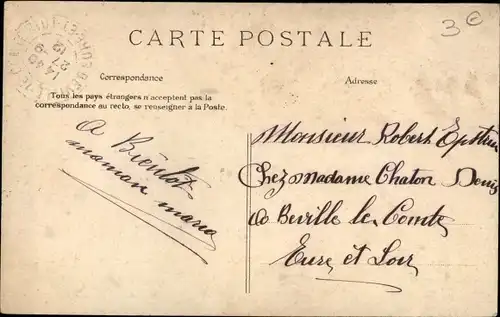 3€
CARTE POSTALE
Correspondance
Adresse
Tous les pays étrangers n'acceptent pas la
correspondance au recto, se renseigner à la Poste.
A Bientot
maman maria
Monsieur Robert Epstein
Chez Madame Chaton Denis
a Beville le Comte
Eure et Loir
14 40
27 - 9
12